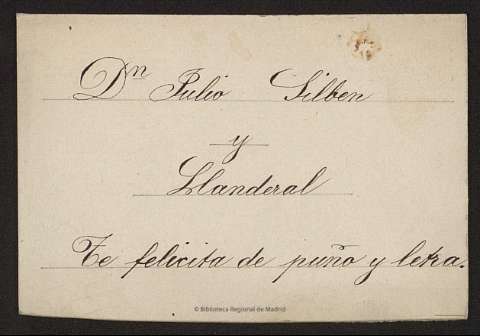 Dn Julio Silben
y
Llanderal
Te felicita de puño y letra.
© Biblioteca Regional de Madrid